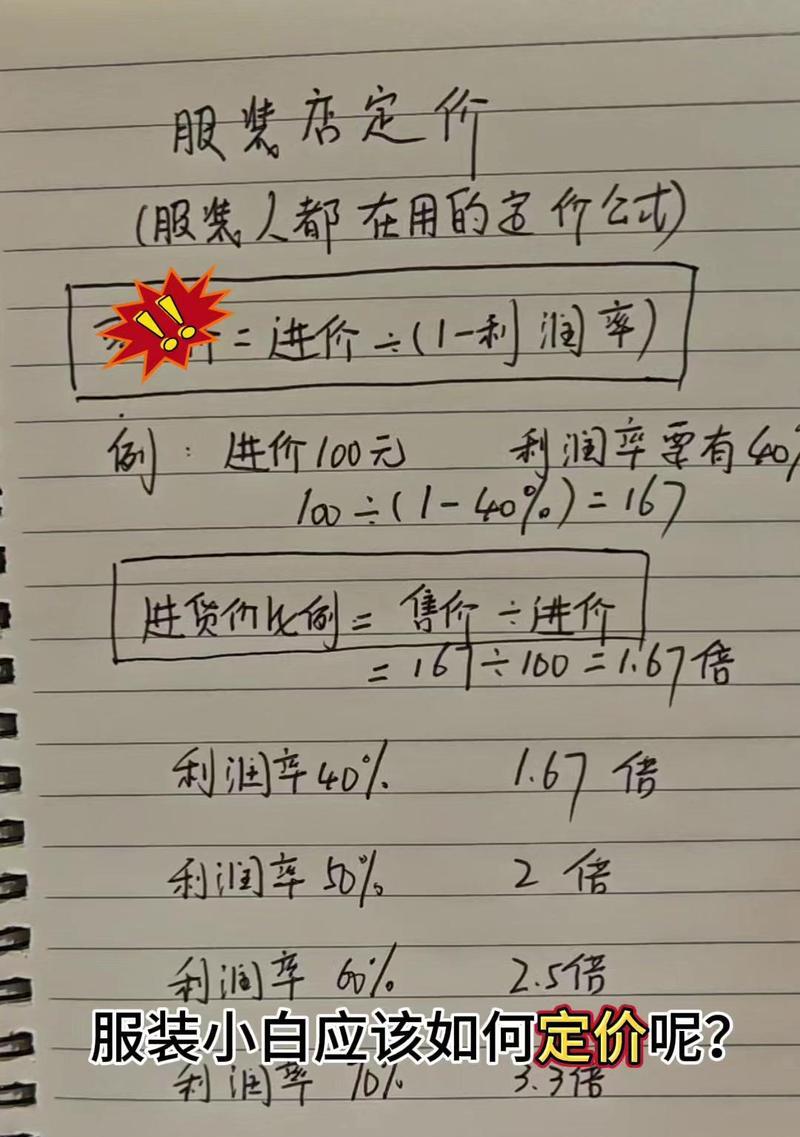 服装店定价
(服装人都在用的定价公式)
价=进价÷(1-利润率)
例:进价100元 利润率要有40%
100÷(1-40%)=167
进货价比例=售价÷进价
=167÷100=1.67倍
利润率40% 1.67倍
利润率50% 2倍
利润率60% 2.5倍
服装小白应该如何定价呢?
利润率70% 3.3倍